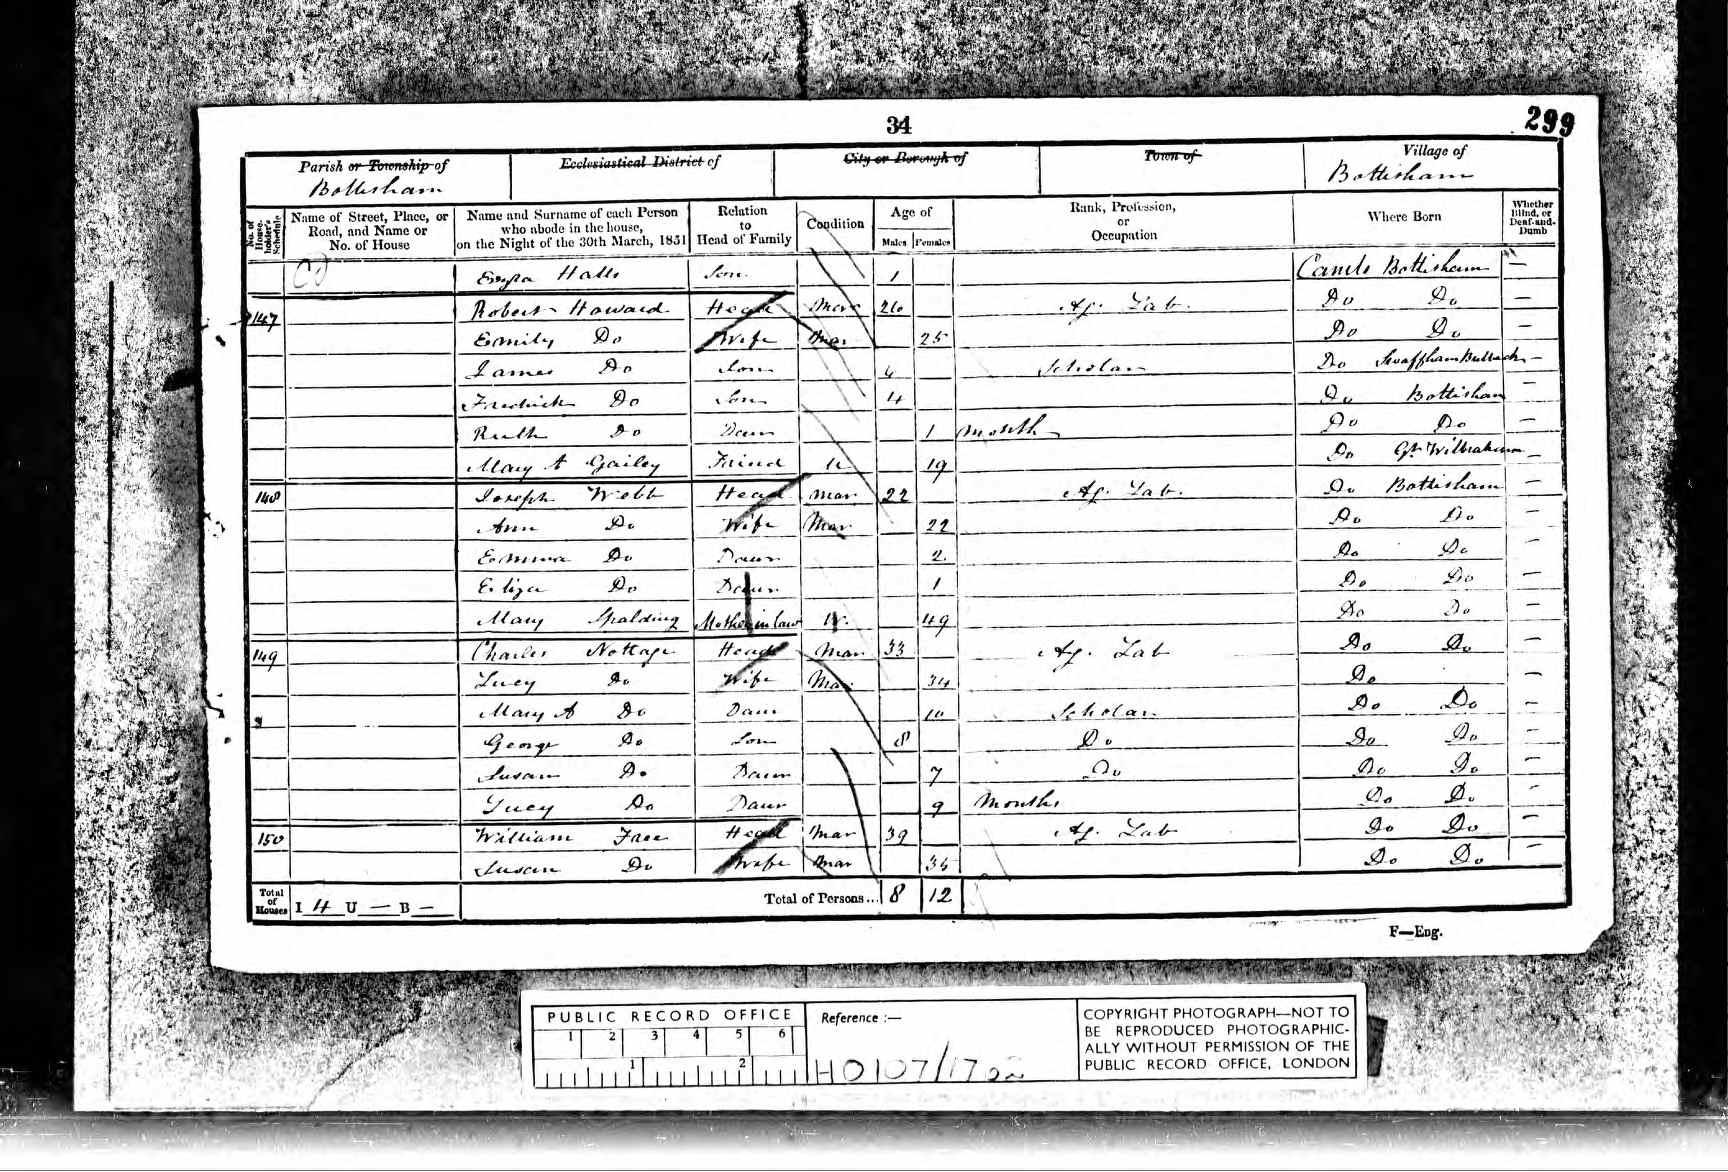 34
299
Parish or Township of
Bottisham
Ecclesiastical District of
City or Borough of
Town of
Village of
Bottisham
No. of House-holder's Schedule
Name of Street, Place, or Road, and Name or No. of House
Name and Surname of each Person who abode in the house, on the Night of the 30th March, 1851
Relation to Head of Family
Condition
Age of
Males Females
Rank, Profession, or Occupation
Where Born
Whether Blind, or Deaf-and-Dumb
Halls Son 1 Cambs Bottisham –
147 Robert Howard Head Mar 26 Ag. Lab. Do Do –
Emily Do Wife Mar 25 Do Do –
James Do Son Scholar Do Swaffham Bulbeck –
Fredrick Do Son 4 Do Bottisham –
Ruth Do Daur 1 Month Do Do –
Mary A Gailey Friend U 19 Do Gt. Wilbraham –
148 Joseph Webb Head Mar 22 Ag. Lab. Do Bottisham –
Ann Do Wife Mar 22 Do Do –
Emma Do Daur 2. Do Do –
Eliza Do Daur 1 Do Do –
Mary Spalding Mother in law W. 49 Do Do –
149 Charles Nottage Head Mar 33 Ag. Lab Do Do –
Lucy Do Wife Mar 34 Do –
Mary A Do Daur 10 Scholar Do Do –
George Do Son 8 Do Do Do –
Susan Do Daur 7 Do Do Do –
Lucy Do Daur 9 Months Do Do –
150 William Head Mar 39 Ag. Lab Do Do –
Susan Do Wife Mar Do Do –
Total of Houses I 4 U — B —
Total of Persons... 8 12
F—Eng.
PUBLIC RECORD OFFICE
1 2 3 4 5 6
1 2
Reference :—
HO107/1762
COPYRIGHT PHOTOGRAPH—NOT TO
BE REPRODUCED PHOTOGRAPHIC-
ALLY WITHOUT PERMISSION OF THE
PUBLIC RECORD OFFICE, LONDON